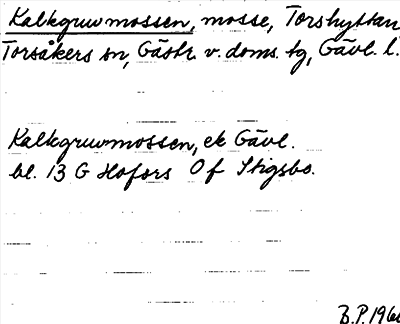 Kalkgruvmossen, mosse, Torshyttan
Torsåkers sn, Gästr. v. doms. tg, Gävl. l.
Kalkgruvmossen, ek Gävl.
bl. 13 G Hofors 0 f Stigsbo.
B.P. 196